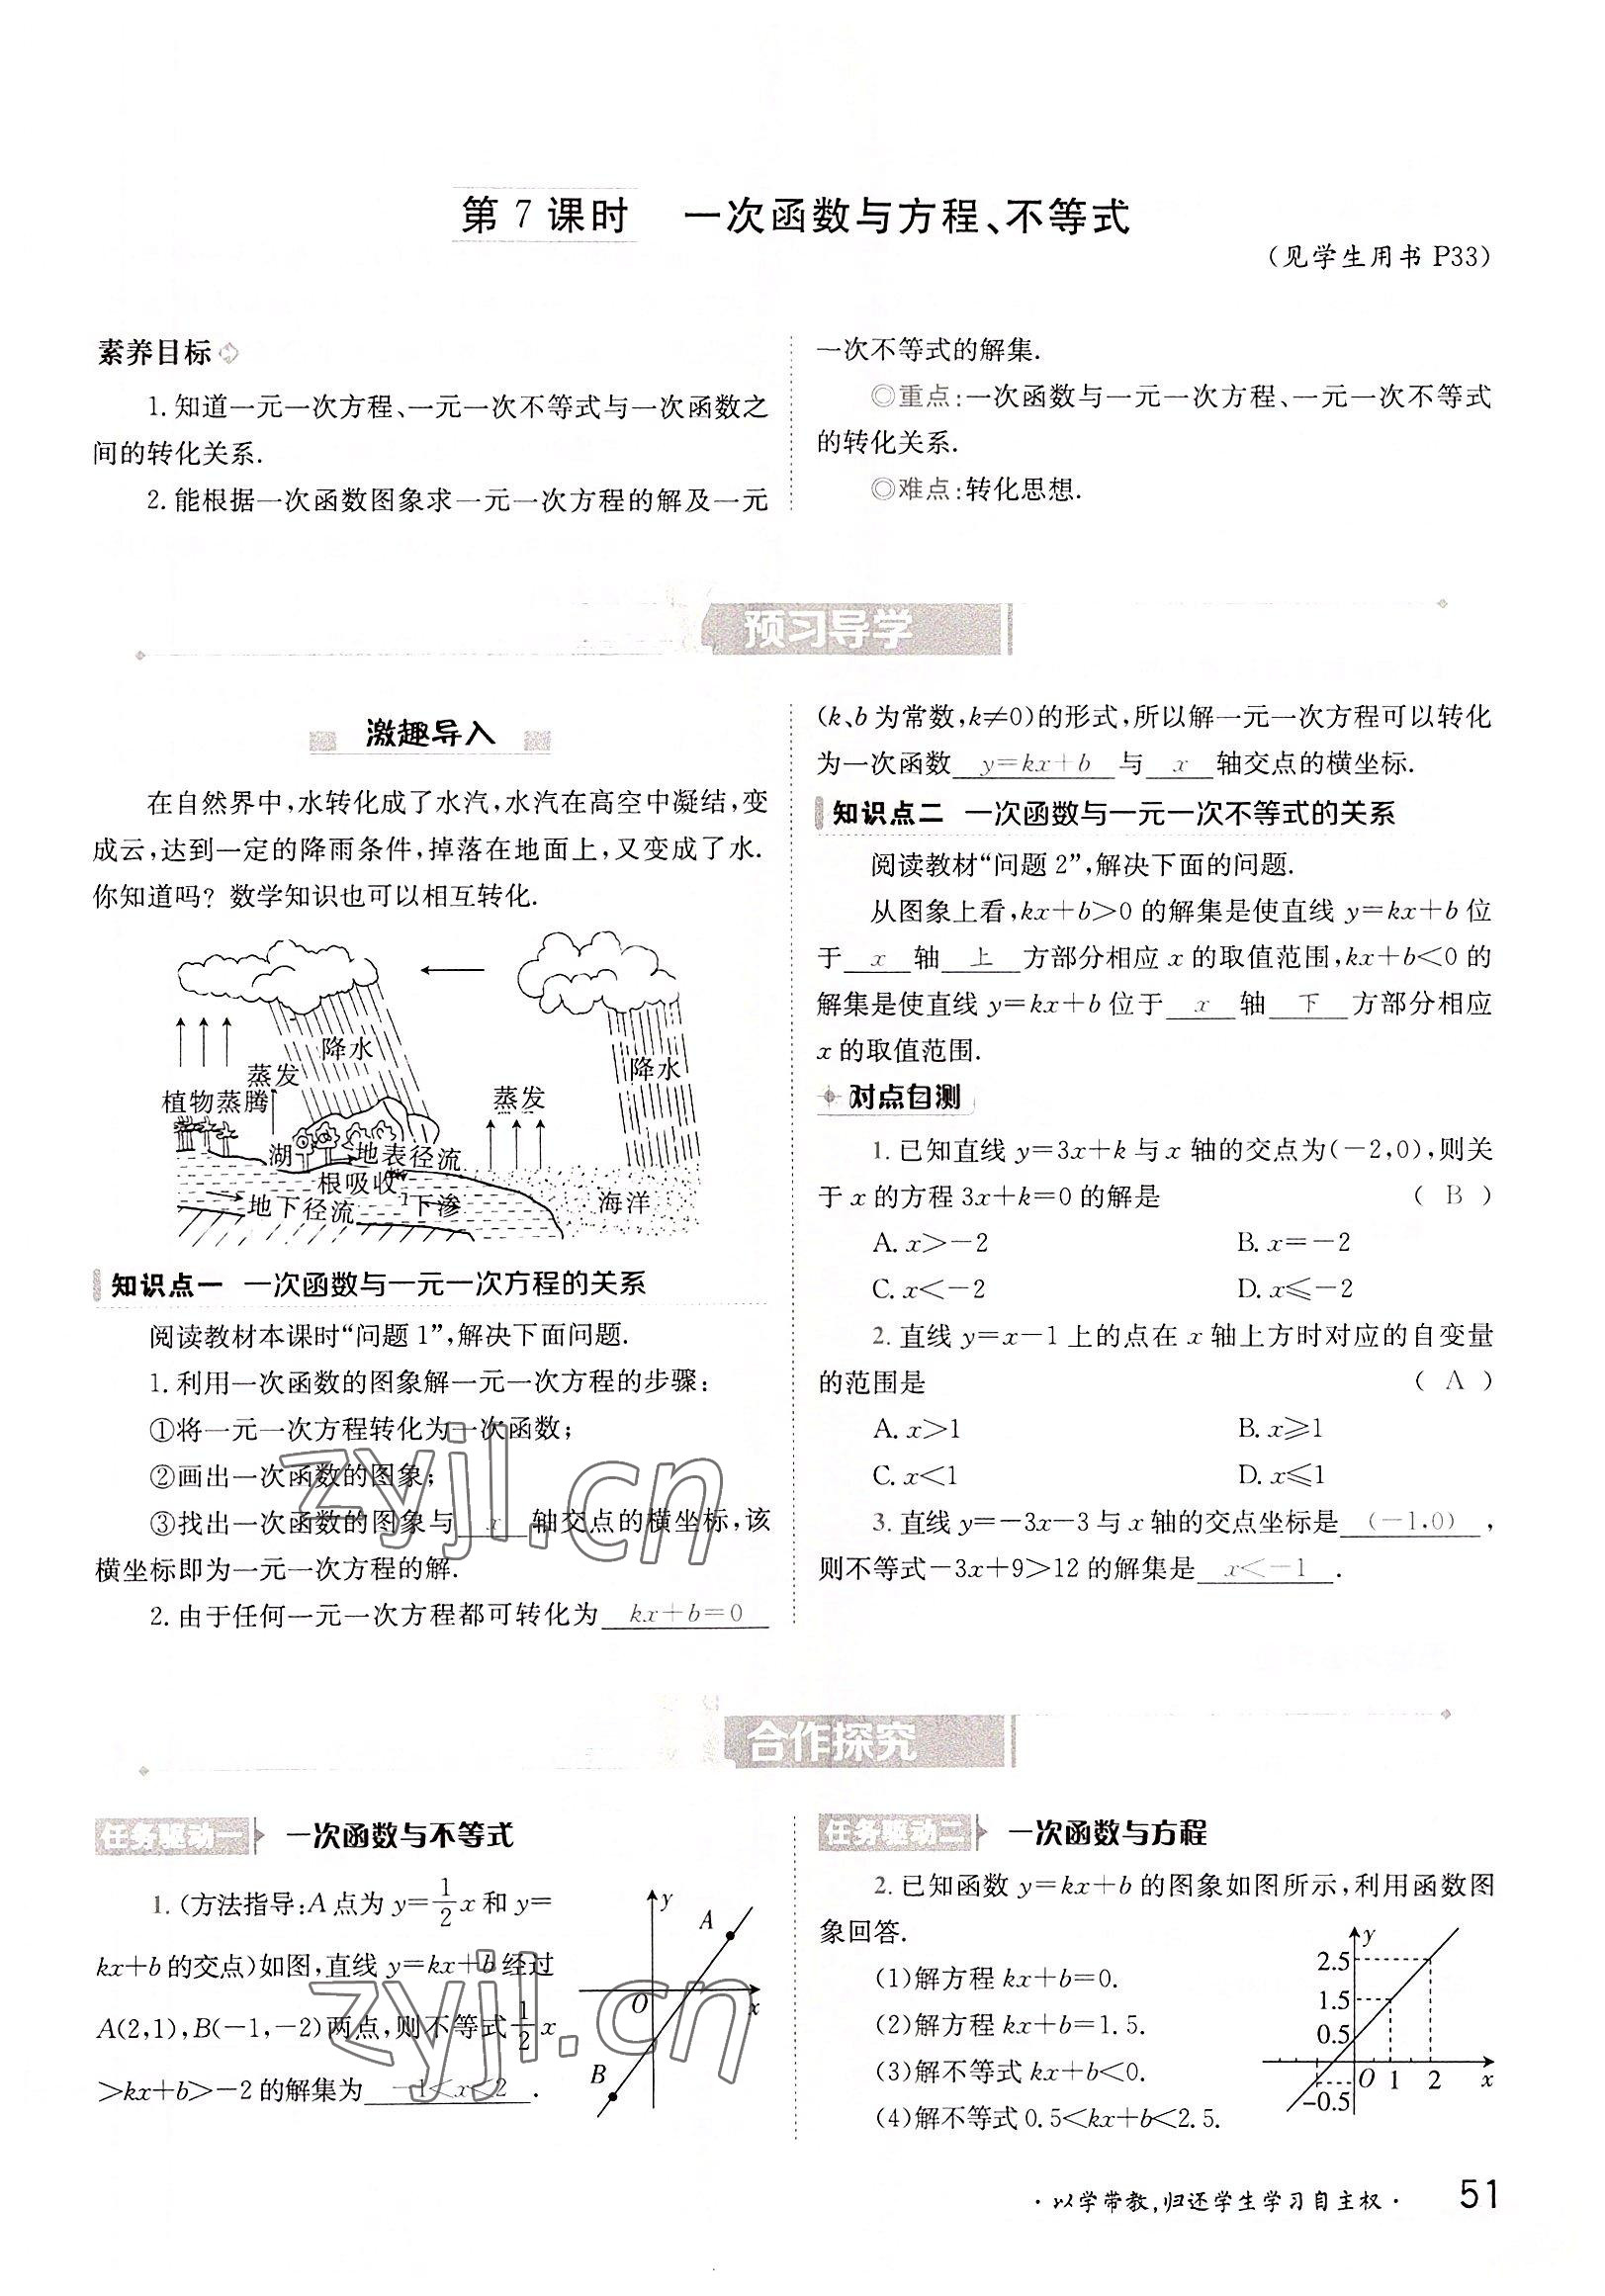 第 7 课时 一次函数与方程、不等式
(见学生用书 P33)
素养目标
1.知道一元一次方程、一元一次不等式与一次函数之
间的转化关系.
2.能根据一次函数图象求一元一次方程的解及一元
一次不等式的解集.
◎重点:一次函数与一元一次方程、一元一次不等式
的转化关系.
◎难点:转化思想.
预习导学
激趣导入
在自然界中,水转化成了水汽,水汽在高空中凝结,变
成云,达到一定的降雨条件,掉落在地面上,又变成了水.
你知道吗? 数学知识也可以相互转化.
降水
降水
蒸发
蒸发
植物蒸腾
湖
地表径流
根吸收
下渗
地下径流
海洋
知识点一 一次函数与一元一次方程的关系
阅读教材本课时“问题1”,解决下面问题.
1.利用一次函数的图象解一元一次方程的步骤:
①将一元一次方程转化为一次函数;
②画出一次函数的图象;
③找出一次函数的图象与 x 轴交点的横坐标,该
横坐标即为一元一次方程的解.
2.由于任何一元一次方程都可转化为 kx+b=0
(k、b为常数,k≠0)的形式,所以解一元一次方程可以转化
为一次函数 y=kx+b 与 x 轴交点的横坐标.
知识点二 一次函数与一元一次不等式的关系
阅读教材“问题2”,解决下面的问题.
从图象上看,kx+b>0的解集是使直线y=kx+b位
于 x 轴 上 方部分相应x的取值范围,kx+b<0的
解集是使直线y=kx+b位于 x 轴 下 方部分相应
x的取值范围.
对点自测
1.已知直线y=3x+k与x轴的交点为(-2,0),则关
于x的方程3x+k=0的解是 ( B )
A. x>-2 B. x=-2
C. x<-2 D. x⩽-2
2.直线y=x-1上的点在x轴上方时对应的自变量
的范围是 ( A )
A. x>1 B. x⩾1
C. x<1 D. x⩽1
3.直线y=-3x-3与x轴的交点坐标是 (-1,0) ,
则不等式-3x+9>12的解集是 x<-1 .
zyjl.cn
合作探究
任务驱动一 一次函数与不等式
1.(方法指导:A点为y=1/2x和y=
kx+b的交点)如图,直线y=kx+b经过
A(2,1),B(-1,-2)两点,则不等式1/2x
>kx+b>-2的解集为 -1<x<2 .
y
A
O
x
B
zyjl.cn
任务驱动二 一次函数与方程
2.已知函数y=kx+b的图象如图所示,利用函数图
象回答.
(1)解方程kx+b=0.
(2)解方程kx+b=1.5.
(3)解不等式kx+b<0.
(4)解不等式0.5<kx+b<2.5.
y
2.5
1.5
0.5
O 1 2 x
-0.5
·以学带教,归还学生学习自主权· 51